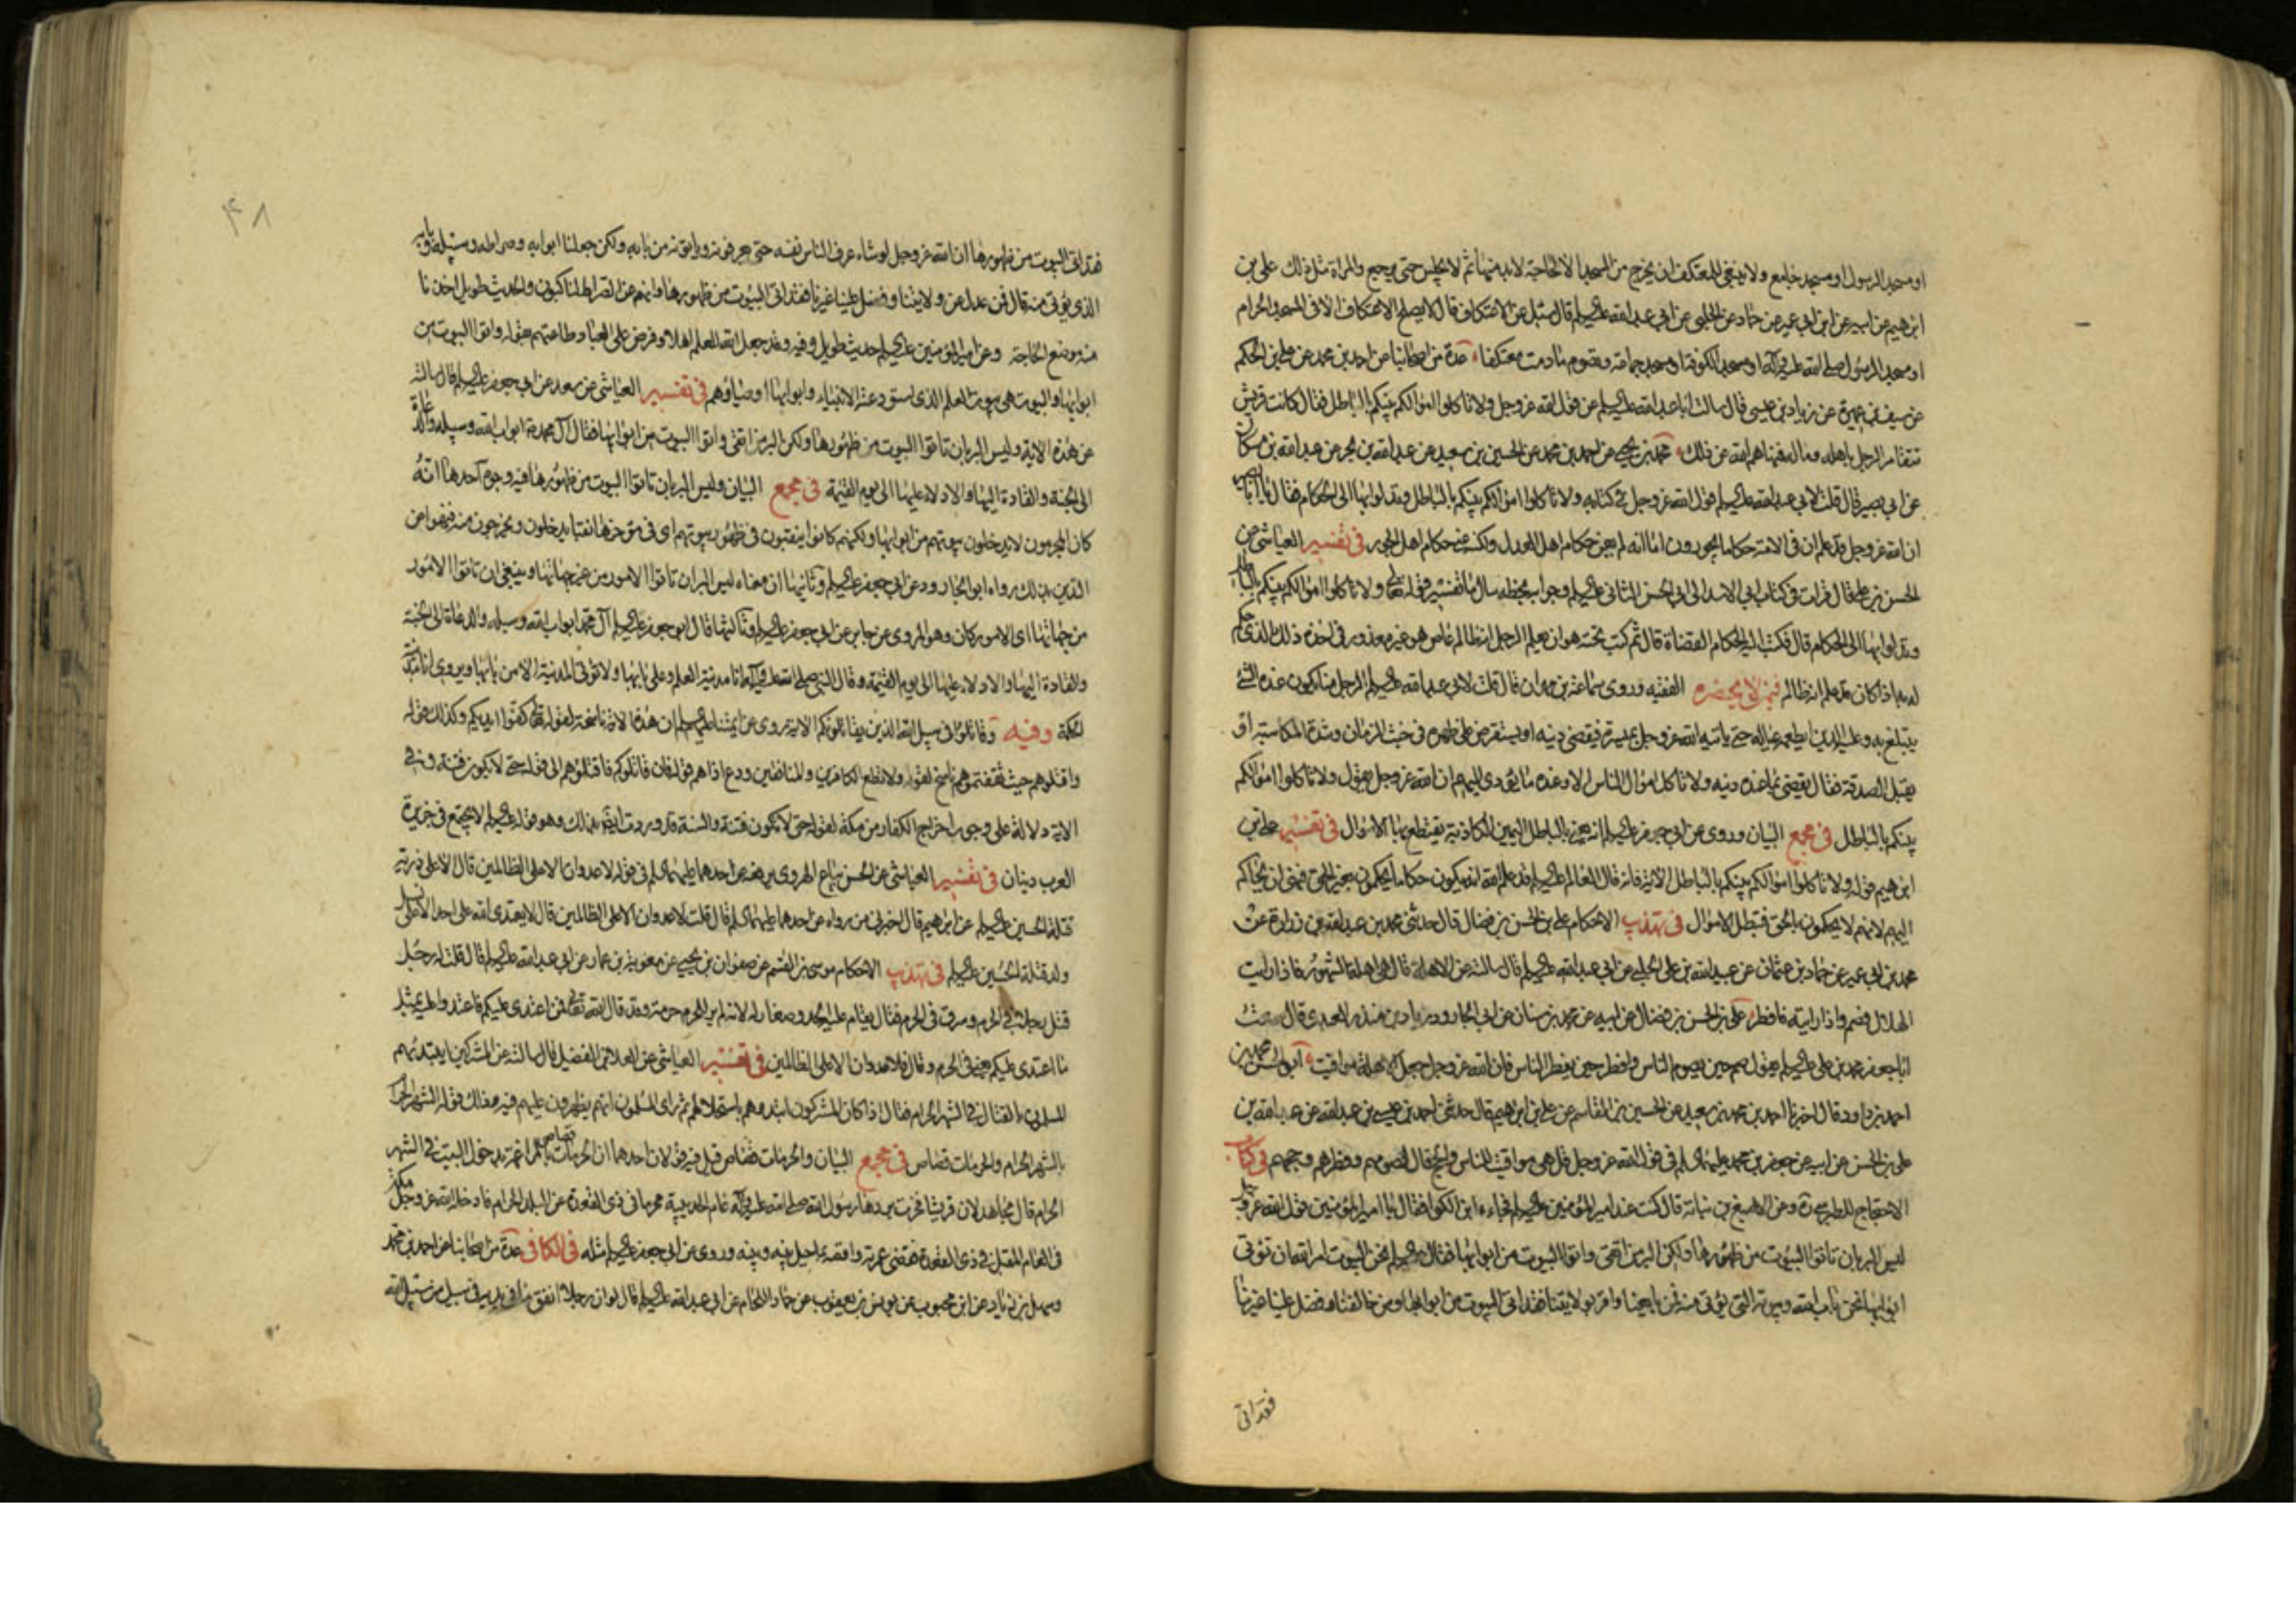 او مسجد الرسول او مسجد جامع ولا ينبغي للمعتكف ان يخرج من المسجد الا لحاجة لابد منها ثم لا يجلس حتى يرجع والمراة مثل ذلك علي بن
ابرهيم عن ابيه عن ابن ابي عمير عن حماد عن الحلبي عن ابي عبد الله عليه السلم قال سئل عن الاعتكاف قال لا يصلح الاعتكاف الا في المسجد الحرام
او مسجد الرسول صلى الله عليه وآله او مسجد الكوفة او مسجد جماعة وتصوم ما دمت معتكفا عدة من اصحابنا عن احمد بن محمد عن علي بن الحكم
عن سيف بن عميرة عن زياد بن عيسى قال سالت ابا عبد الله عليه السلم عن قول الله عز وجل ولا تاكلوا اموالكم بينكم بالباطل فقال كانت قريش
تتقامر الرجل باهله وماله فنهاهم الله عن ذلك محمد بن يحيى عن احمد بن محمد عن الحسين بن سعيد عن عبد الله بن بحر عن عبد الله بن مسكان
عن ابي بصير قال قلت لابي عبد الله عليه السلم قول الله عز وجل في كتابه ولا تاكلوا اموالكم بينكم بالباطل وتدلوا بها الى الحكام فقال يا ابا بصير
ان الله عز وجل قد علم ان في الامة حكاما يجورون اما انه لم يعن حكام اهل العدل ولكنه عنى حكام اهل الجور في تفسير العياشي عن
الحسن بن علي قال قرات في كتاب ابي الاسد الى ابي الحسن الثاني عليه السلم وجوابه بخطه سال ما تفسير قوله تعالى ولا تاكلوا اموالكم بينكم بالباطل
وتدلوا بها الى الحكام قال فكتب اليه الحكام القضاة قال ثم كتب تحته هو ان يعلم الرجل انه ظالم عاص هو غير معذور في اخذه ذلك الذي حكم
له به اذا كان قد علم انه ظالم فيمن لا يحضره الفقيه وروى سماعة بن مهران قال قلت لابي عبد الله عليه السلم الرجل منا يكون عنده الشئ
يتبلغ به وعليه الدين ايطعمه عياله حتى ياتيه الله عز وجل بميسرة فيقضي دينه او يستقرض على ظهره في خبث الزمان وشدة المكاسبة او
يقبل الصدقة فقال يقضي بما عنده دينه ولا تاكل اموال الناس الا وعنده ما يؤدي اليهم ان الله عز وجل يقول ولا تاكلوا اموالكم
بينكم بالباطل في مجمع البيان وروى عن ابي جعفر عليه السلم انه يعني بالباطل اليمين الكاذبة يقتطع بها الاموال في تفسير علي بن
ابرهيم قوله ولا تاكلوا اموالكم بينكم بالباطل الاية فانه قال العالم عليه السلم قد علم الله انه يكون حكاما يحكمون بغير الحق فنهى ان يحاكم
اليهم لانهم لا يحكمون بالحق فتبطل الاموال في تهذيب الاحكام علي بن الحسن بن فضال قال حدثني محمد بن عبد الله بن زرارة عن
محمد بن ابي عمير عن حماد بن عثمان عن عبيد الله بن علي الحلبي عن ابي عبد الله عليه السلم قال سالته عن الاهلة قال هي اهلة الشهور فاذا رايت
الهلال فصم واذا رايته فافطر علي بن الحسن بن فضال عن ابيه عن محمد بن سنان عن ابي الجارود زياد بن منذر العبدي قال سمعت
ابا جعفر محمد بن علي عليه السلم يقول صم حين يصوم الناس وافطر حين يفطر الناس فان الله عز وجل جعل الاهلة مواقيت ابو الحسن محمد بن
احمد بن داود قال اخبرنا احمد بن محمد بن سعيد عن الحسين بن القاسم عن علي بن ابرهيم قال حدثني احمد بن عيسى بن عبد الله عن عبد الله بن
علي بن الحسن عن ابيه عن جعفر بن محمد عليهما السلم في قول الله عز وجل قل هي مواقيت للناس والحج قال لصومهم وفطرهم وحجهم في كتاب
الاحتجاج للطبرسي ره وعن الاصبغ بن نباتة قال كنت عند امير المؤمنين عليه السلم فجاءه ابن الكوا فقال يا امير المؤمنين قول الله عز وجل
ليس البر بان تاتوا البيوت من ظهورها ولكن البر من اتقى واتوا البيوت من ابوابها فقال عليه السلم نحن البيوت امر الله ان تؤتى
ابوابها نحن باب الله وبيوته التي يؤتى منه فمن بايعنا واقر بولايتنا فقد اتى البيوت من ابوابها ومن خالفنا وفضل علينا غيرنا
فقد اتى
۴۸
فقد اتى البيوت من ظهورها ان الله عز وجل لو شاء عرف الناس نفسه حتى يعرفونه وياتونه من بابه ولكن جعلنا ابوابه وصراطه وسبيله وبابه
الذي يؤتى منه قال فمن عدل عن ولايتنا وفضل علينا غيرنا فقد اتى البيوت من ظهورها وانهم عن الصراط لناكبون والحديث طويل اخذنا
منه موضع الحاجة وعن امير المؤمنين عليه السلم حديث طويل وفيه وقد جعل الله للعلم اهلا وفرض على العباد طاعتهم بقوله واتوا البيوت من
ابوابها والبيوت هي بيوت العلم الذي استودعته الانبياء وابوابها اوصياؤهم في تفسير العياشي عن سعد عن ابي جعفر عليه السلم قال سالته
عن هذه الاية وليس البر بان تاتوا البيوت من ظهورها ولكن البر من اتقى واتوا البيوت من ابوابها فقال آل محمد ابواب الله وسبيله والدعاة
الى الجنة والقادة اليها والادلاء عليها الى يوم القيمة في مجمع البيان وليس البر بان تاتوا البيوت من ظهورها فيه وجوه احدها انه
كان المحرمون لا يدخلون بيوتهم من ابوابها ولكنهم كانوا ينقبون في ظهور بيوتهم اى في مؤخرها نقبا يدخلون ويخرجون منه فنهوا عن
التدين بذلك رواه ابو الجارود عن ابي جعفر عليه السلم وثانيها ان معناه ليس البر ان تاتوا الامور من غير جهاتها وينبغي ان تاتوا الامور
من جهاتها اى الامور كان وهو المروى عن جابر عن ابي جعفر عليه السلم وثالثها قال ابو جعفر عليه السلم آل محمد ابواب الله وسبله والدعاة الى الجنة
والقادة اليها والادلاء عليها الى يوم القيمة وقال النبي صلى الله عليه وآله انا مدينة العلم وعلي بابها ولا تؤتى المدينة الا من بابها ويروى انا مدينة
الحكمة وفيه وقاتلوا في سبيل الله الذين يقاتلونكم الاية روى عن ائمتنا عليهم السلم ان هذه الاية ناسخة لقوله تعالى كفوا ايديكم وكذلك قوله
واقتلوهم حيث ثقفتموهم ناسخ لقوله ولا تطع الكافرين والمنافقين ودع اذاهم قوله فان قاتلوكم فاقتلوهم الى قوله حتى لا يكون فتنة وفي
الاية دلالة على وجوب اخراج الكفار من مكة لقوله حتى لا تكون فتنة والسنة قد وردت ايضا بذلك وهو قوله عليه السلم لا يجتمع في جزيرة
العرب دينان في تفسير العياشي عن الحسن بياع الهروى يرفعه عن احدهما عليهما السلم في قوله لا عدوان الا على الظالمين قال الا على ذرية
قتلة الحسين عليه السلم عن ابرهيم قال اخبرني من رواه عن احدهما عليهما السلم قال قلت لا عدوان الا على الظالمين قال لا يعتدى الله على احد الا على نسل
ولد قتلة الحسين عليه السلم في تهذيب الاحكام موسى بن القسم عن صفوان بن يحيى عن معوية بن عمار عن ابي عبد الله عليه السلم قال قلت له رجل
قتل رجلا في الحرم وسرق في الحرم فقال يقام عليه الحد وصغار له لانه لم ير للحرم حرمة وقد قال الله تعالى فمن اعتدى عليكم فاعتدوا عليه بمثل
ما اعتدى عليكم يعني في الحرم وقال فلا عدوان الا على الظالمين في تفسير العياشي عن العلا بن الفضيل قال سالته عن المشركين ايبتدئهم
المسلمون بالقتال في الشهر الحرام فقال اذا كان المشركون ابتدوهم باستحلالهم ثم راى المسلمون انهم يظهرون عليهم فيه وذلك قوله الشهر الحرام
بالشهر الحرام والحرمات قصاص في مجمع البيان والحرمات قصاص قيل فيه قولان احدهما ان الحرمات قصاص بالمراغمة بدخول البيت في الشهر
الحرام قال مجاهد لان قريشا فخرت بردها رسول الله صلى الله عليه وآله عام الحديبية محرما في ذي القعدة عن البلد الحرام فادخله الله عز وجل مكة
في العام المقبل في ذي القعدة فقضى عمرته واقصه بما حيل بينه وبينه وروى عن ابي جعفر عليه السلم مثله في الكافي عدة من اصحابنا عن احمد بن محمد
وسهل بن زياد عن ابن محبوب عن يونس بن يعقوب عن حماد اللحام عن ابي عبد الله عليه السلم قال لو ان رجلا انفق ما في يديه في سبيل من سبيل الله